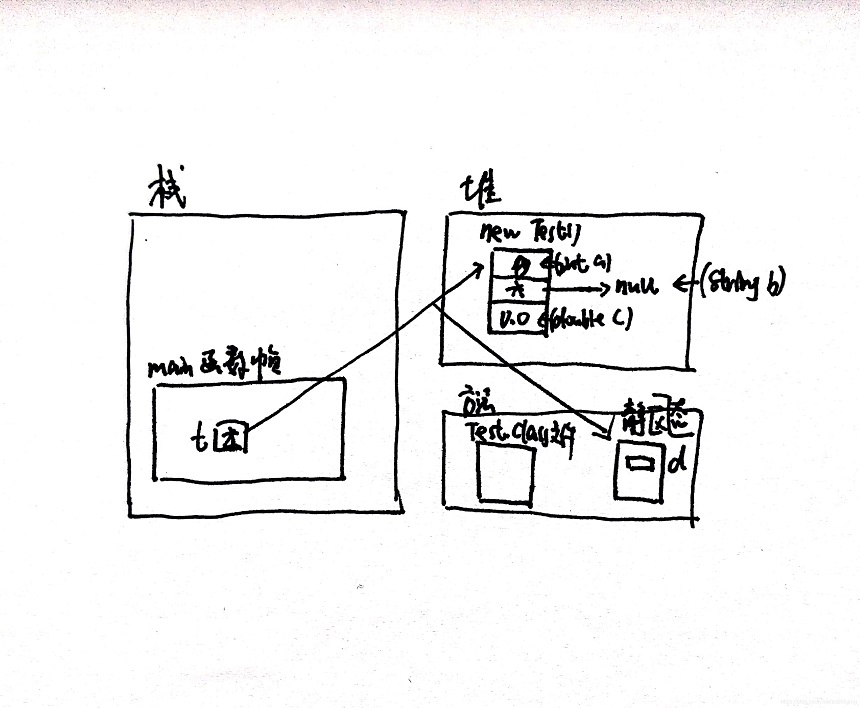 栈
堆
new Test()
0 (int a)
null (String b)
0.0 (double c)
main 函数帧
t
方法
Test.class文件
静态区
d